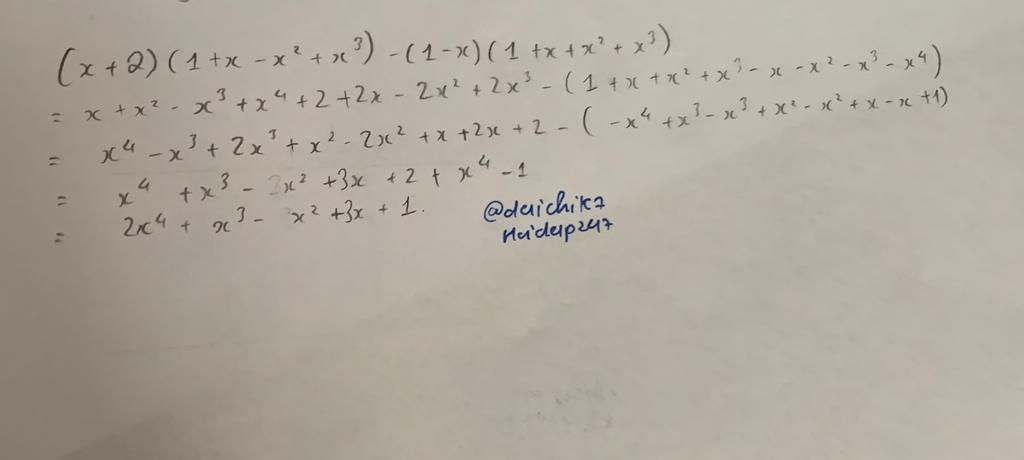 (x+2)(1+x-x²+x³)-(1-x)(1+x+x²+x³)
= x+x²-x³+x⁴+2+2x-2x²+2x³-(1+x+x²+x³-x-x²-x³-x⁴)
= x⁴-x³+2x³+x²-2x²+x+2x+2-(-x⁴+x³-x³+x²-x²+x-x+1)
= x⁴+x³-x²+3x+2+x⁴-1
= 2x⁴+x³-x²+3x+1.